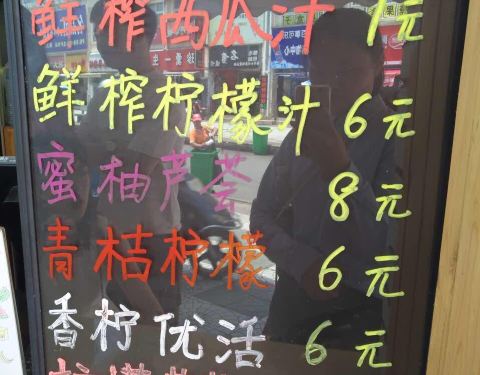 鲜榨西瓜汁 1元
鲜榨柠檬汁 6元
蜜柚芦荟 8元
青桔柠檬 6元
香柠优活 6元